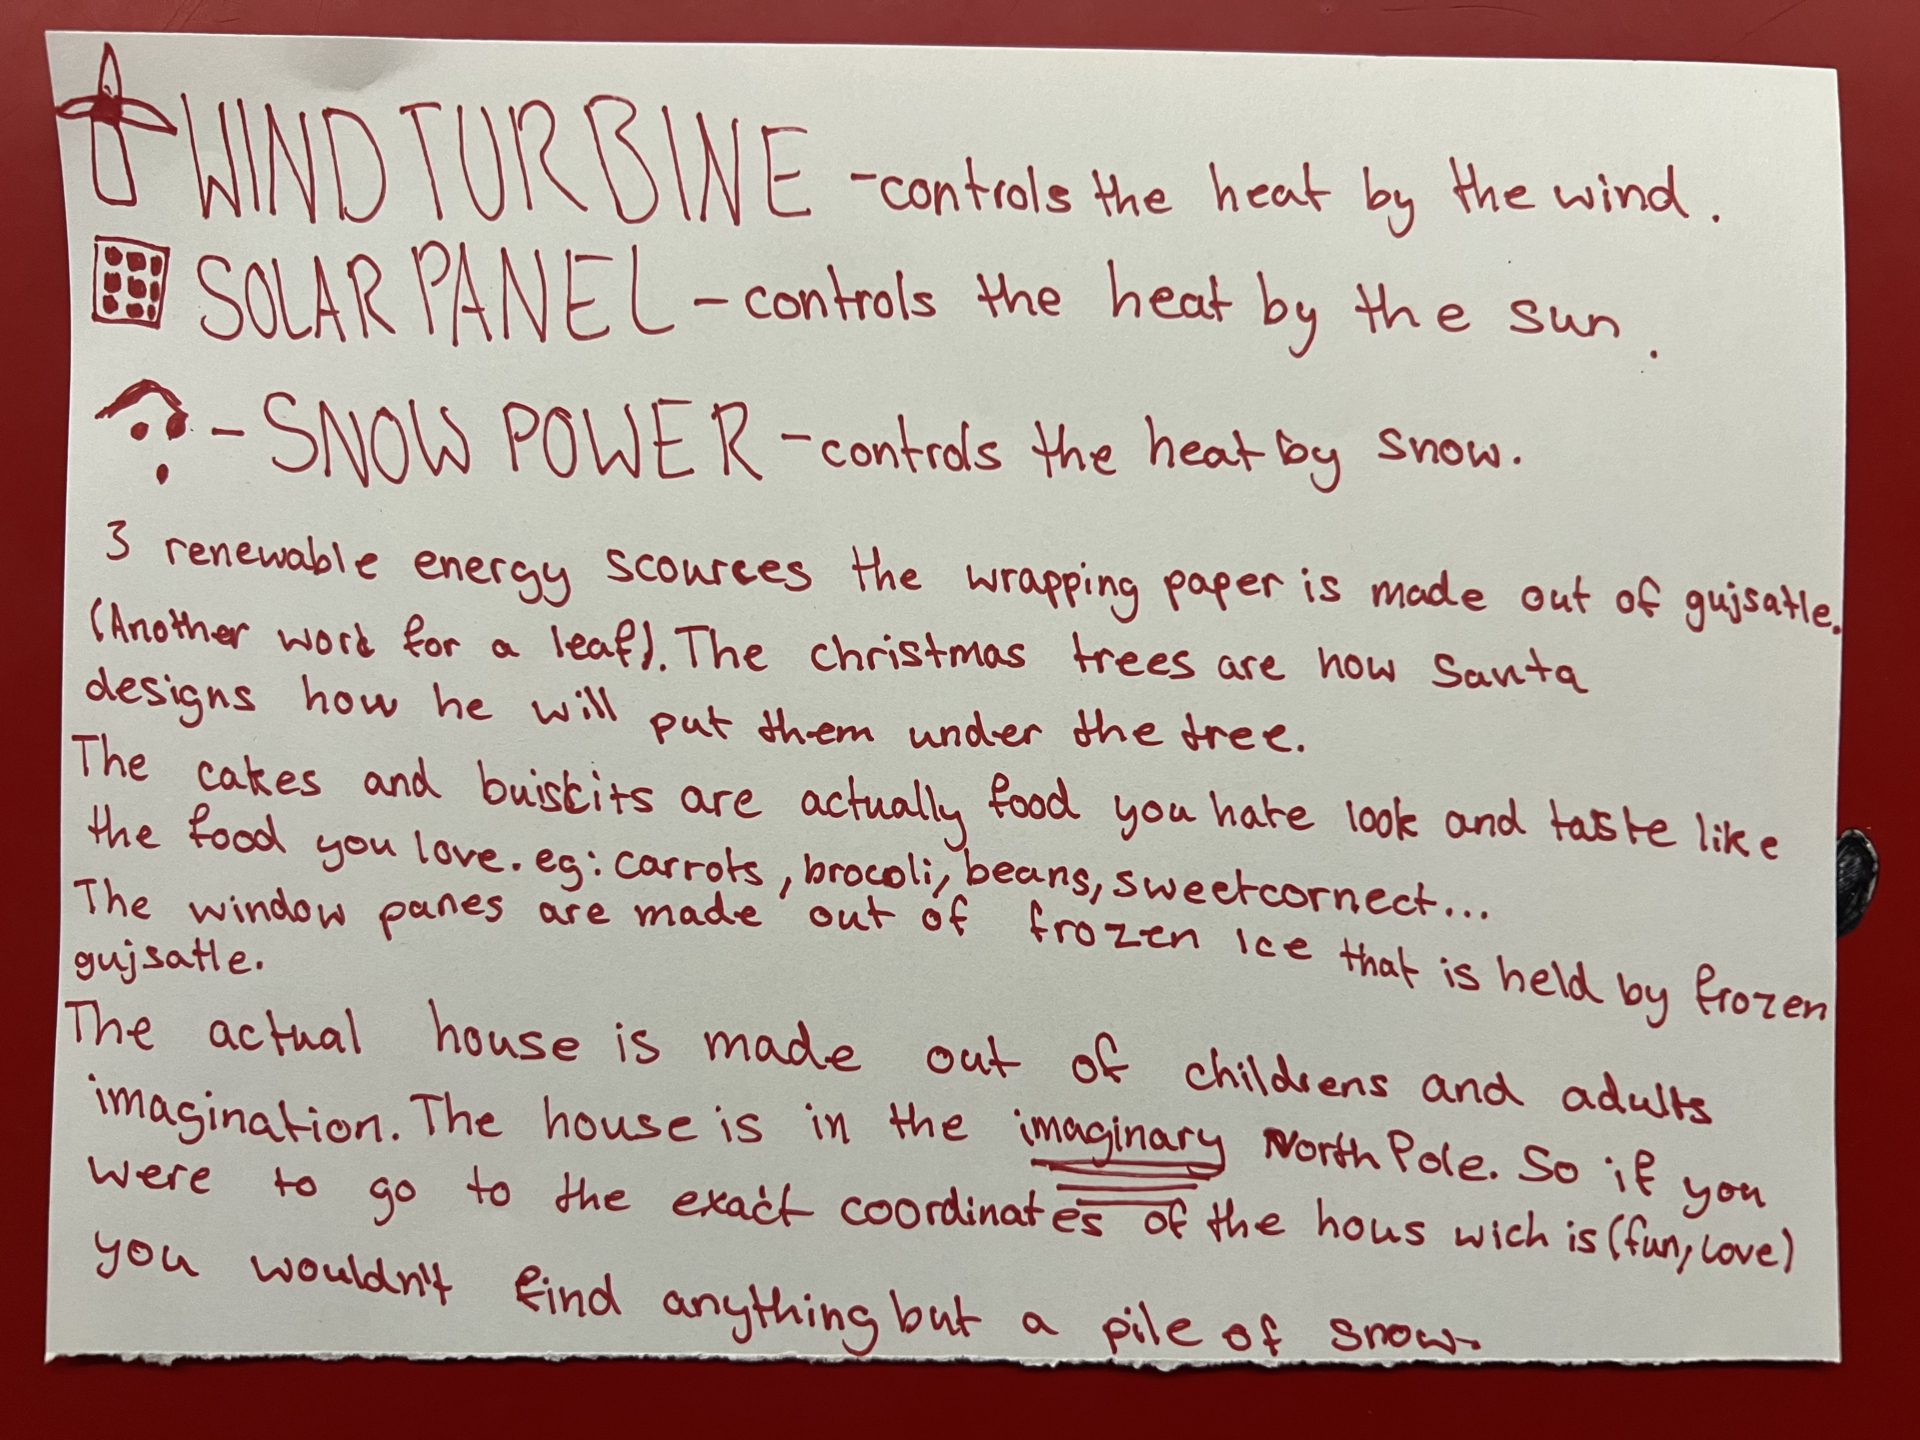 WIND TURBINE - controls the heat by the wind.
SOLAR PANEL - controls the heat by the sun.
- SNOW POWER - controls the heat by snow.
3 renewable energy scources the wrapping paper is made out of gujsatle.
(Another word for a leaf). The christmas trees are how Santa
designs how he will put them under the tree.
The cakes and buiskits are actually food you hate look and taste like
the food you love. eg: carrots, brocoli, beans, sweetcornect...
The window panes are made out of frozen Ice that is held by frozen
gujsatle.
The actual house is made out of childrens and adults
imagination. The house is in the imaginary North Pole. So if you
were to go to the exact coordinates of the hous wich is (fun, love)
you wouldn't find anything but a pile of snow.